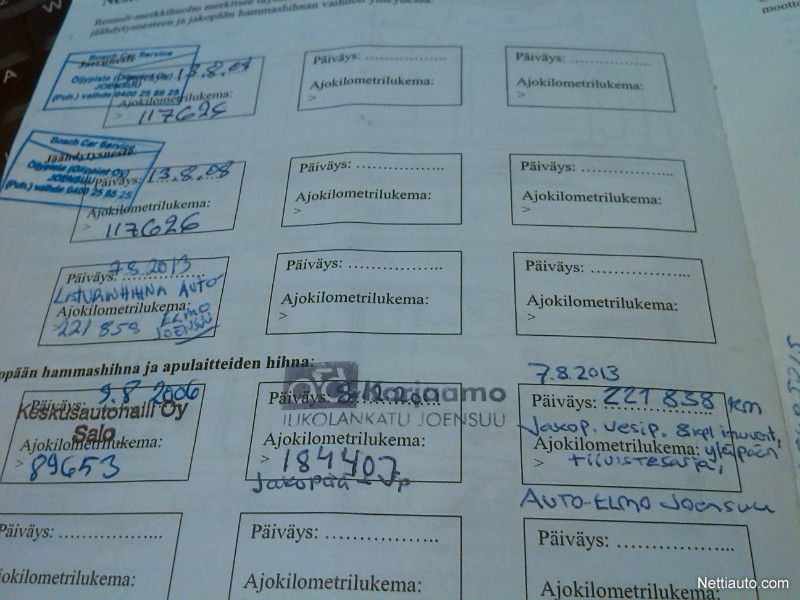 Renault-merkkihuolto merkitsee
jäähdytysnesteen ja jakopään hammashihnan vaihdon yhteydessä.
Bosch Car Service
Öljypiste (Oilpoint Oy)
JOENSUU
(Puh.) vaihde 0400 25 88 25
13.8.08
Ajokilometrilukema:
> 117626
Päiväys: ..................
Ajokilometrilukema:
>
Päiväys: ..................
Ajokilometrilukema:
>
Bosch Car Service
Jäähdytysneste:
Öljypiste (Oilpoint Oy)
JOENSUU
(Puh.) vaihde 0400 25 88 25
Päiväys: 13.8.08
Ajokilometrilukema:
> 117626
Päiväys: ..................
Ajokilometrilukema:
>
Päiväys: ..................
Ajokilometrilukema:
>
Päiväys: 7.8.2013
AUTO
Ajokilometrilukema:
> 221 858 ELMO
JOENSUU
Päiväys: ..................
Ajokilometrilukema:
>
Päiväys: ..................
Ajokilometrilukema:
>
opään hammashihna ja apulaitteiden hihna:
Päiväys: 9.8 2006
Keskusautohalli Oy
Salo
Ajokilometrilukema:
> 89653
Päiväys:
Korjaamo
JUKOLANKATU JOENSUU
Ajokilometrilukema:
> 184407
Jakopää - Vp
7.8.2013
Päiväys: 221 838 km
Jakop. vesip. 8kpl imuvent,
Ajokilometrilukema: yläpään
> tiivistesarja,
AUTO-ELMO JOENSUU
Päiväys: ..................
Ajokilometrilukema:
Päiväys: ..................
Ajokilometrilukema:
Päiväys: ..................
Ajokilometrilukema:
Nettiauto.com